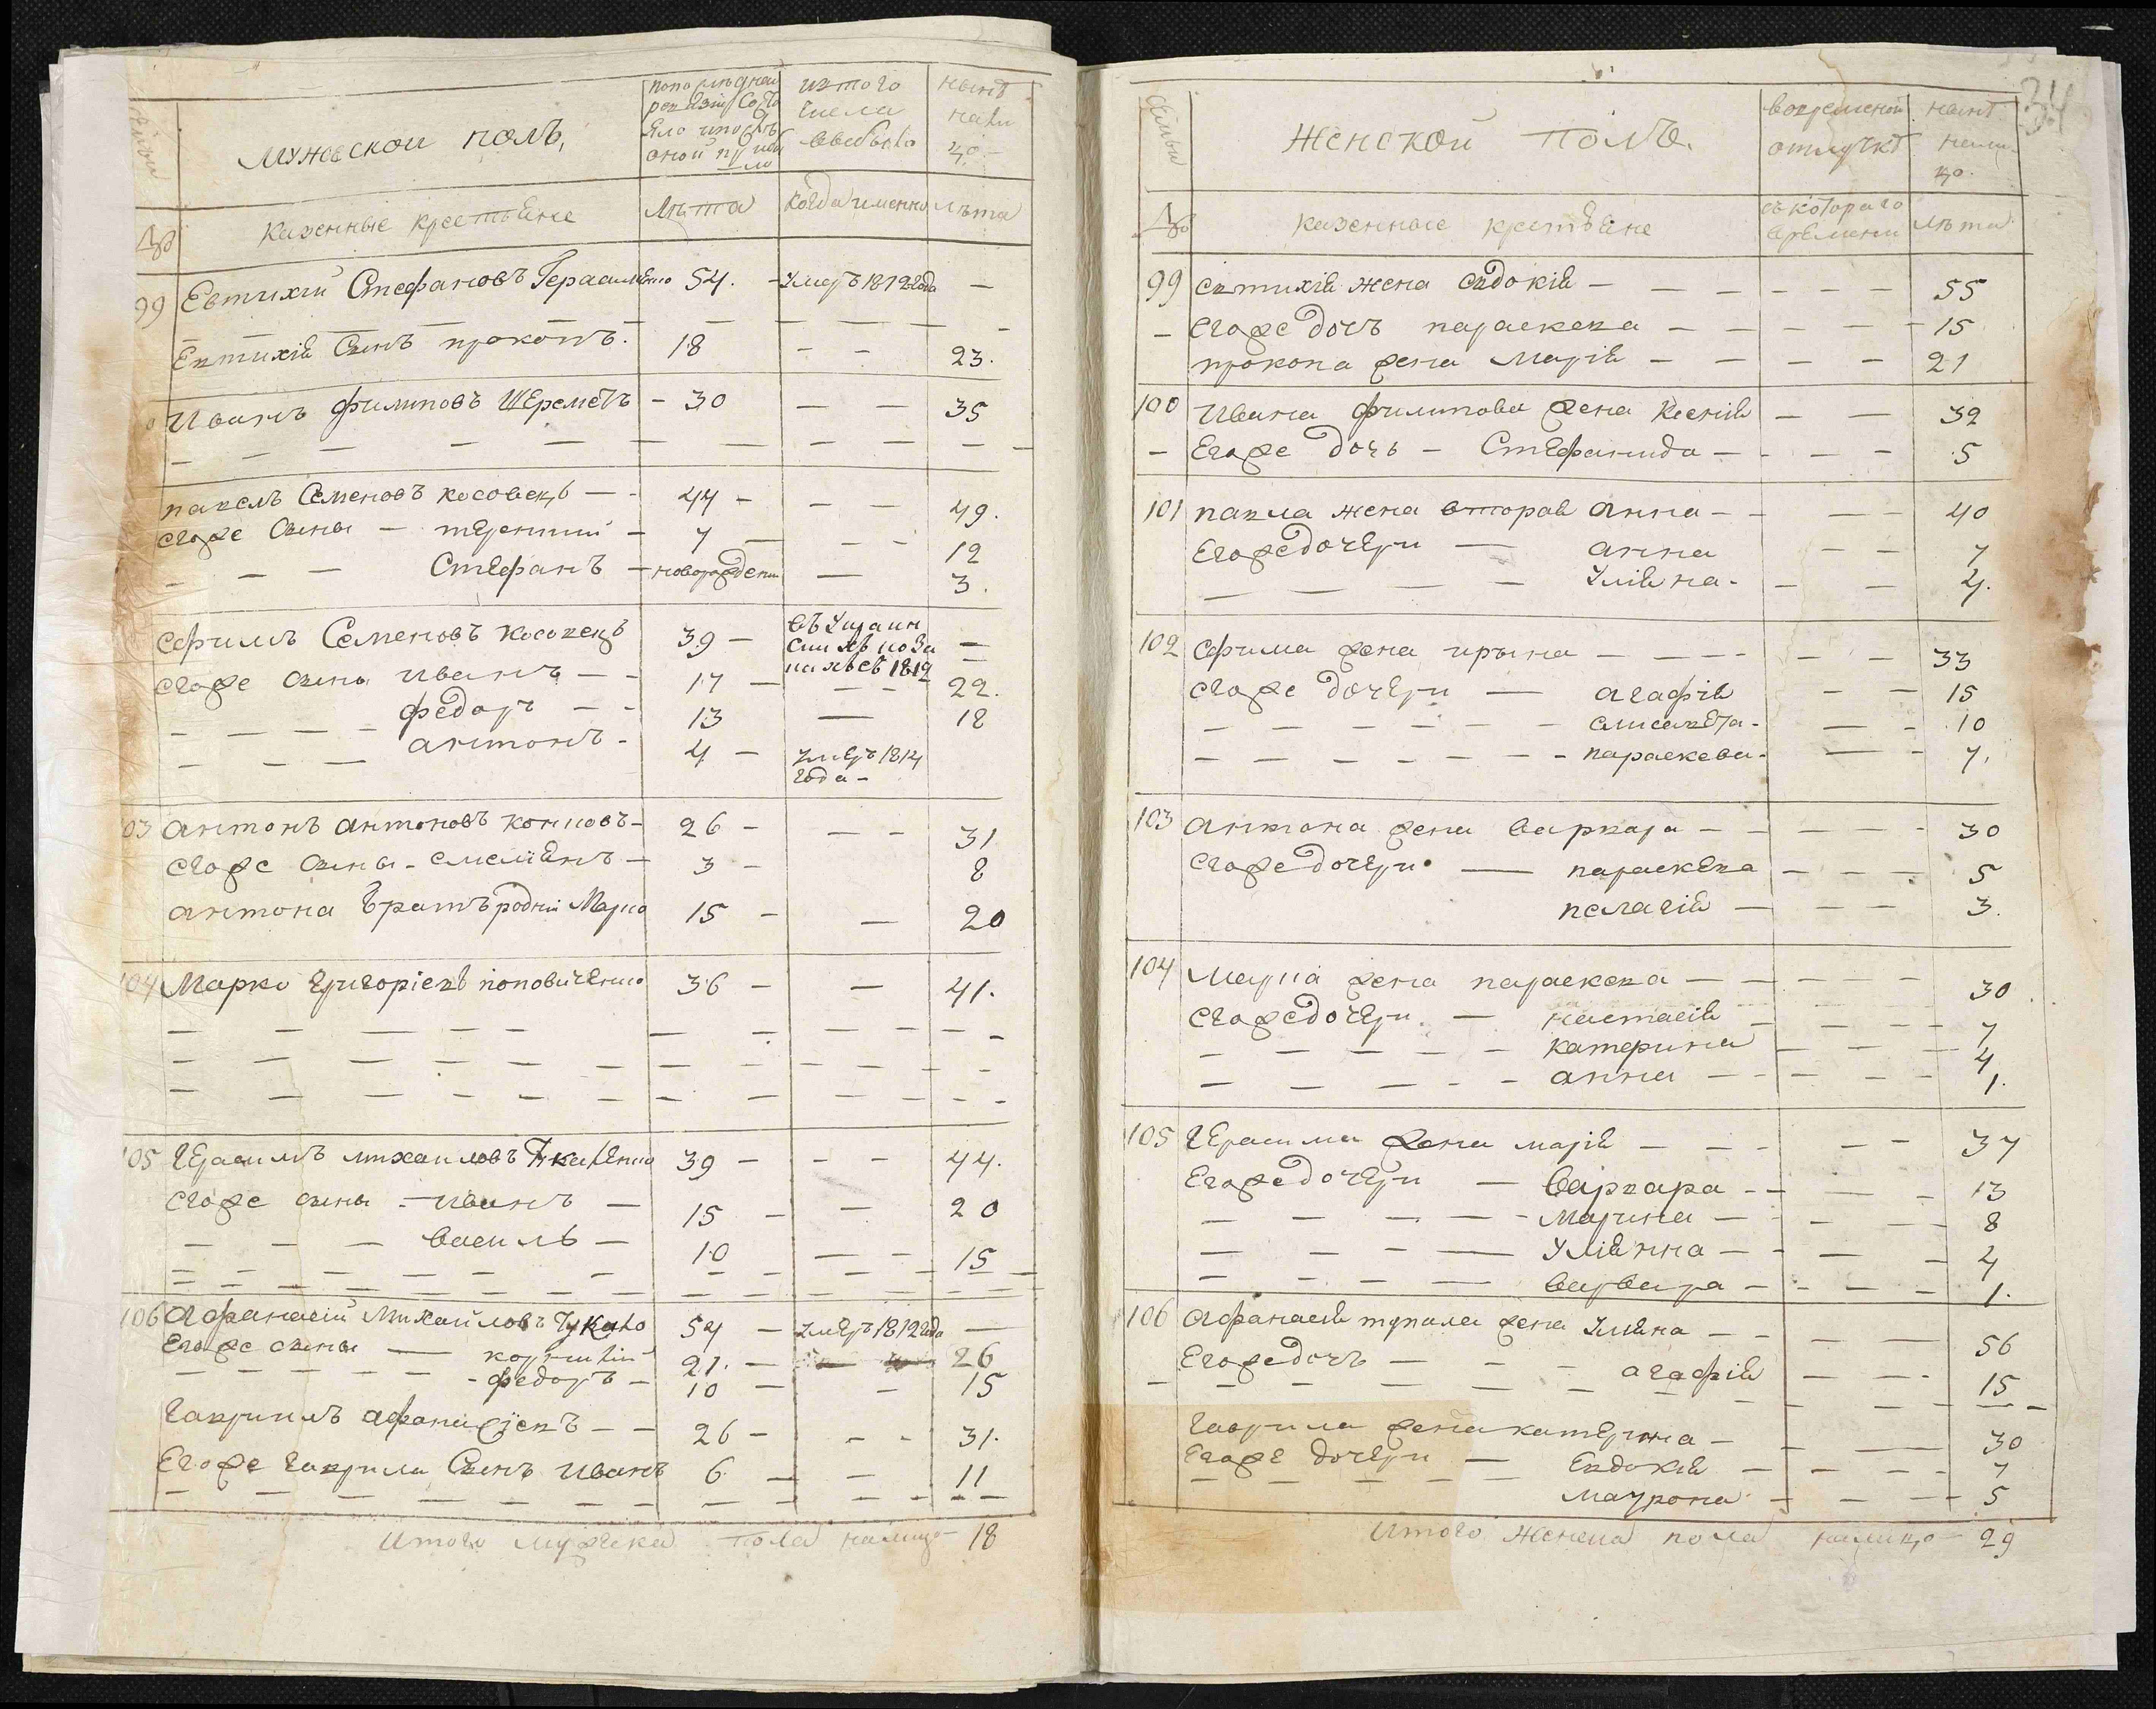 мужескои полъ,
попослѣдней ревизіи Состояло ипослѣ оной прибыло
изтого числа выбыло
нынѣ налицо
№ казенные крестьяне
лѣта
когда именно
лѣта
99 Евтихій Стефановъ Герасименко 54. - Умеръ 1812 года —
Евтихія Сынъ прокопъ. 18 - - 23.
Иванъ филиповъ Шереметъ - 30 — — 35
павелъ Семеновъ косовецъ — - 44 - - — 49.
егоже сыны — терентий - 7 — - - 12
— — — Стефанъ - новорожденъ — 3.
ефимъ Семеновъ косовецъ 39 - —
егоже сыны иванъ — - 17 — - — - 22.
— — — — федоръ — - 13 — 18
— — — антонъ - 4 — умеръ 1814 года -
03 антонъ антоновъ - 26 - — - 31
егоже сыны - емелянъ — 3 - 8
антона братъ родній Марко 15 - — 20
104 Марко Григоріевъ поповиченко 36 - — 41.
105 Герасимъ михаиловъ 39 - - - 44.
егоже сыны - иванъ — 15 - — 20
— — — василь — 10 — - 15
106 афанасій Михайловъ 54 — умеръ 1812 года —
Егоже сыны — корнилій 21. - 26
— — — — - федоръ - 10 - - 15
Гавриилъ афанасіевъ - - 26 - - - 31.
Егоже гаврила Сынъ иванъ 6 - — 11
итого мужска пола налицо 18
34
женской полъ.
вовременной отлучкѣ
нынѣ налицо
№ казенные крестьяне
съ котораго времени
лѣта
99 евтихія жена евдокія - — — — - - — 55
- егоже дочь параскева — — - — - 15
прокопа жена Марія - — — — 21
100 Ивана филипова жена ксенія - — — 32
- Егоже дочь - Стефанида - - - — 5
101 павла жена вторая анна - - — — 40
Егоже дочери — анна - - 7
— — — — - Уліяна - - — 4.
102 ефима жена ирына - — - - - - 33
егоже дочери — агафія - — 15
— — — — елисавета - — - 10
— — — — параскева - — - 7.
103 антона жена варвара — - — — - 30
егоже дочери — параскева - - — 5
пелагія — - — 3.
104 Марка жена параскева — - - — - 30
егоже дочери — настасія - - — - 7
- — — — - катерина — — — 4
— — — - - анна — - — - - 1.
105 Герасима жена марія - — - — - 37
Егоже дочери — варвара - - — - 13
— — — — - марина — - - — 8
— — - — уліянна — - — - 4
— — — — варвара - - - — - 1.
106 афанасія жена уліяна - - — — 56
Егоже дочь — - - агафія - — - 15
гаврила жена катерина — - — 30
Егоже дочери — Евдокія — - - - 7
маурона - — - 5
итого женска пола налицо 29